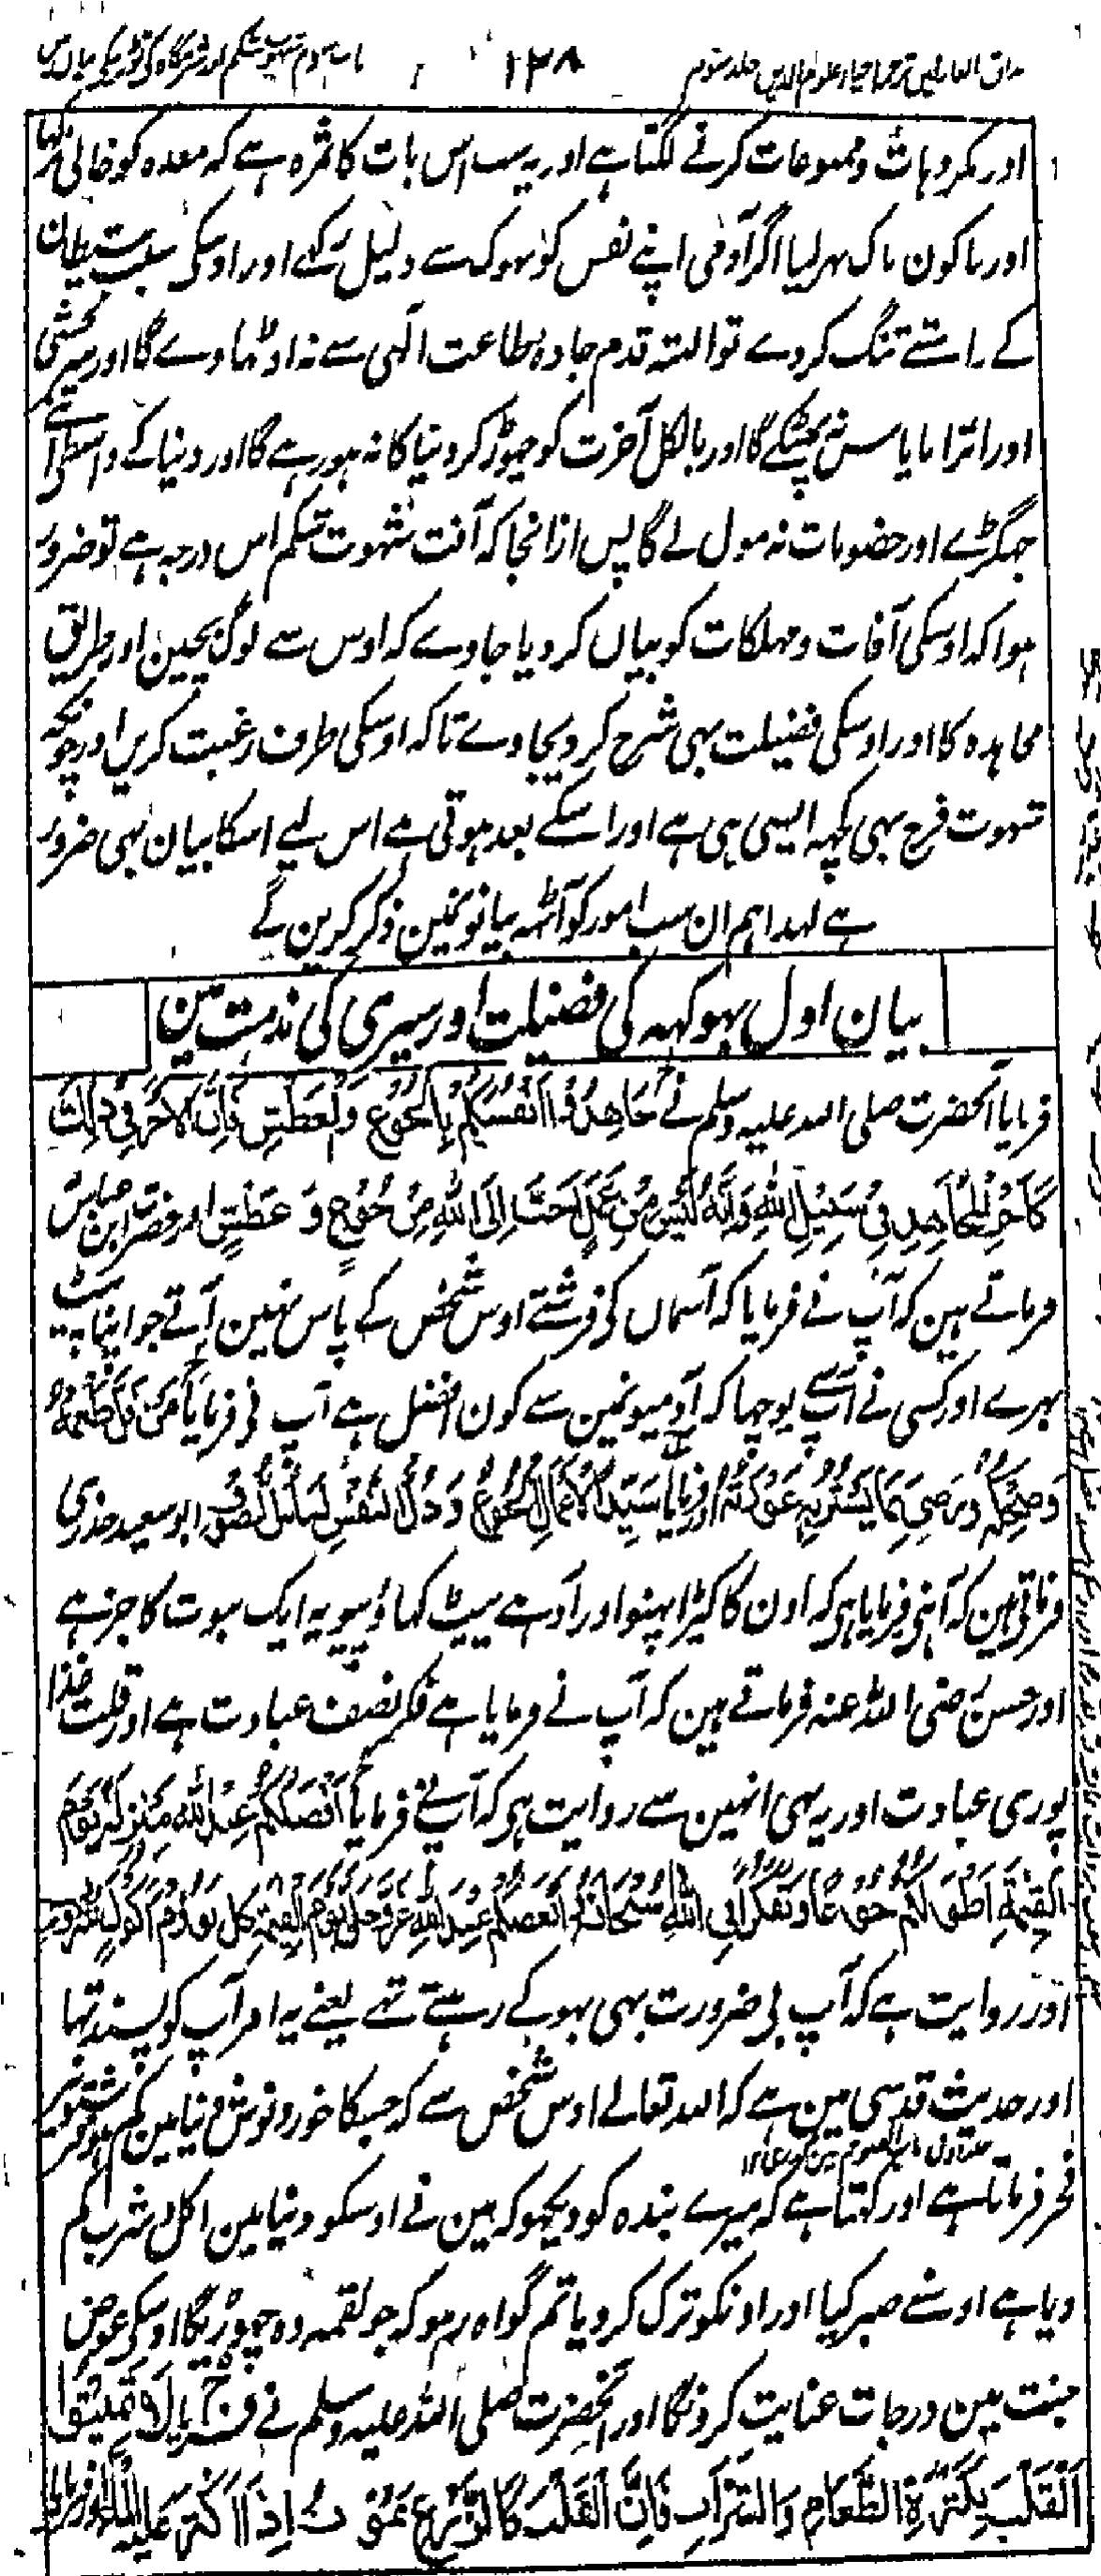 مذاق العارفین ترجمہ احیاء علوم الدین جلد سوم ۱۳۸ باب سوم شہوت شکم اور شرمگاہ کی توڑنیکے بیان میں
اور مکروہات و ممنوعات کرنے لگتا ہے اور یہ سب اس بات کا ثمرہ ہے کہ معدہ کو خالی نرکہا
اور ناکون ناک بہر لیا اگر آدمی اپنے نفس کو بہوک سے ذلیل رکہے اور اوسکی سبب شیطان
کے راستے تنگ کر دے تو البتہ قدم جادہ اطاعت الٰہی سے نہ اوٹھاوے گا اور سرکشی
اور اترانا پاس نہ پھٹکے گا اور بالکل آخرت کو چہوڑ کر دنیا کا نہ ہو رہے گا اور دنیا کے واسطے
جہگڑے اور خصومات نہ مول لے گا پس ازانجا کہ آفت شہوت شکم اس درجہ ہے تو ضرور
ہوا کہ اوسکی آفات و مہلکات کو بیان کر دیا جاوے کہ اوس سے لوگ بچین اور طریق
مجاہدہ کا اور اوسکی فضیلت بہی شرح کر دیجاوے تاکہ اوسکی طرف رغبت کریں اور چونکہ
شہوت فرج بہی کچہ ایسی ہی ہے اور اسکے بعد ہوتی ہے اس لیے اسکا بیان بہی ضرور
ہے لہذا ہم ان سب امور کو آٹھ بیانونمین ذکر کرین گے
بیان اول بہوکہہ کی فضیلت اور سیری کی مذمت مین
فرمایا آنحضرت صلی اللہ علیہ وسلم نے جَاهِدُوْا اَنْفُسَكُمْ بِالْجُوْعِ وَالْعَطَشِ فَاِنَّ الْاَجْرَ فِيْ ذٰلِكَ
كَاَجْرِ الْمُجَاهِدِ فِيْ سَبِيْلِ اللهِ وَاِنَّهٗ لَيْسَ مِنْ عَمَلٍ اَحَبَّ اِلَى اللهِ مِنْ جُوْعٍ وَ عَطَشٍ اور حضرت ابن عباس
فرماتے ہین کہ آپ نے فرمایا کہ آسمان کی فرشتے اوس شخص کے پاس نہین آتے جو اپنا پیٹ
بہرے اور کسی نے آپسے پوچہا کہ آدمیونمین سے کون افضل ہے آپ نی فرمایا مَنْ قَلَّ طُعْمُهٗ
وَضِحْكُهٗ وَرَضِيَ بِمَا يَسْتُرُ بِهٖ عَوْرَتَهٗ اور فرمایا سَيِّدُ الْاَعْمَالِ الْجُوْعُ وَ ذُلُّ النَّفْسِ لِبَاسُ الصُّوْفِ ابو سعید خدری
فرماتی ہین کہ آپنی فرمایا ہی کہ اون کا کپڑا پہنو اور آدہے پیٹ کہاؤ پیو یہ ایک نبوت کا جز ہے
اور حسن رضی اللہ عنہ فرماتے ہین کہ آپ نے فرمایا ہے فکر نصف عبادت ہے اور قلت غذا
پوری عبادت اور یہ بہی انہین سے روایت ہی کہ آپنے فرمایا اَفْضَلُكُمْ عِنْدَ اللهِ مَنْزِلَةً يَوْمَ
الْقِيٰمَةِ اَطْوَلُكُمْ جُوْعًا وَتَفَكُّرًا فِي اللهِ سُبْحَانَهٗ وَاَبْغَضُكُمْ عِنْدَ اللهِ عَزَّوَجَلَّ يَوْمَ الْقِيٰمَةِ كُلُّ نَؤُوْمٍ اَكُوْلٍ شَرُوْبٍ
اور روایت ہے کہ آپ بی ضرورت بہی بہوکے رہتے تہے یعنے یہ امر آپ کو پسند تہا
اور حدیث قدسی مین ہے کہ اللہ تعالے اوس شخص سے کہ جسکا خورونوش دنیا مین کم ہو فرشتونپر
فخر فرماتا ہے اور کہتا ہے کہ میرے بندہ کو دیکہو کہ مین نے اوسکو دنیا مین اکل و شرب کم
دیا ہے اوسنے صبر کیا اور اونکو ترک کر دیا تم گواہ رہو کہ جو لقمہ وہ چہوڑیگا اوسکی عوض
جنت مین درجات عنایت کرونگا اور آنحضرت صلی اللہ علیہ وسلم نے فرمایا لَا تُمِيْتُوا
الْقَلْبَ بِكَثْرَةِ الطَّعَامِ وَالشَّرَابِ فَاِنَّ الْقَلْبَ كَالزَّرْعِ يَمُوْتُ اِذَا اكْثُرَ عَلَيْهِ الْمَاءُ اور فرمایا